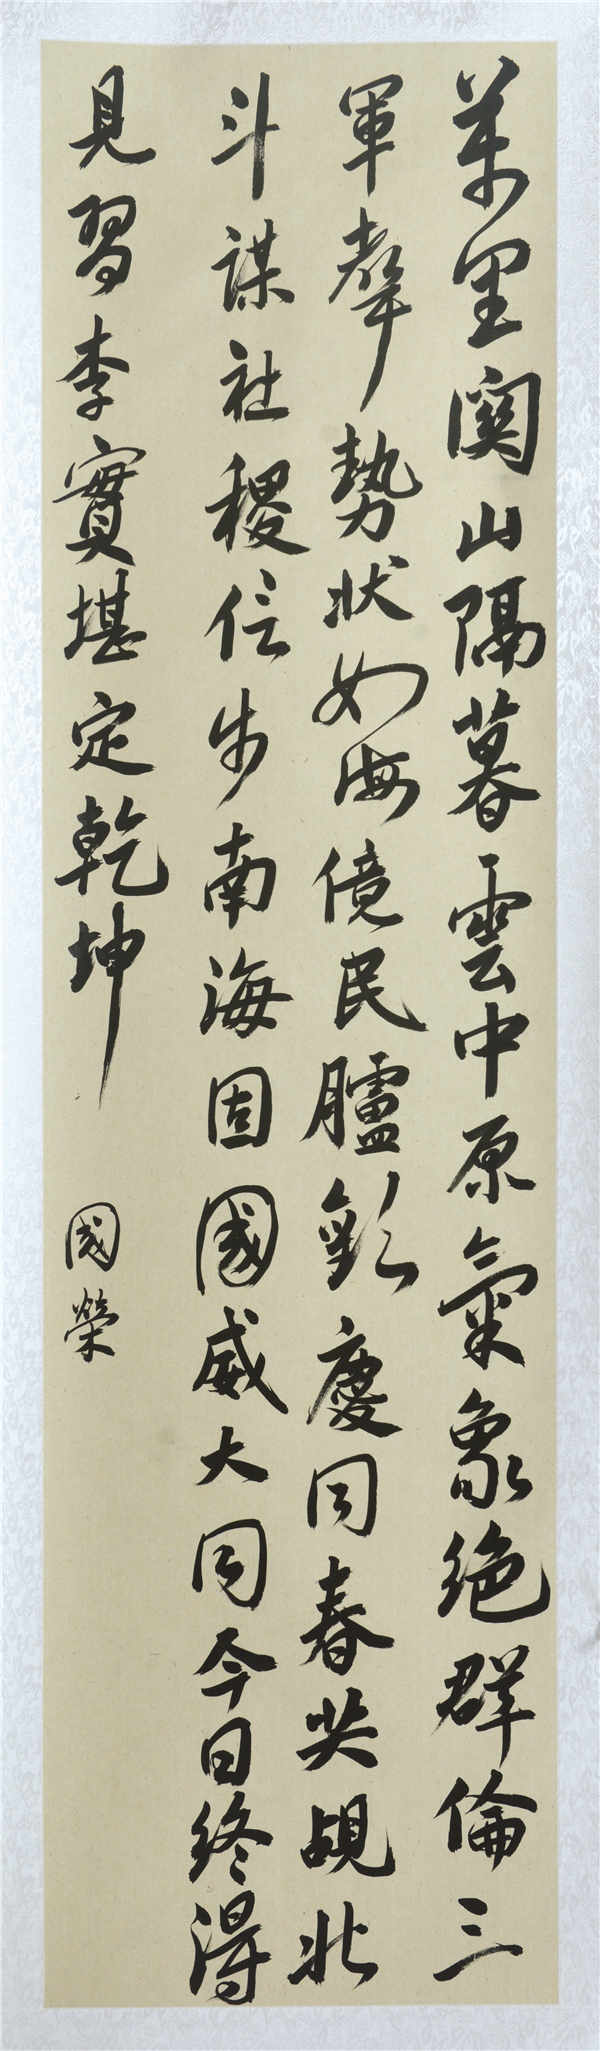 萬里関山隔暮雲中原氣象絶群倫三
軍聲勢状如海億民臚歡慶同春共覩北
斗謀社稷信步南海固國威大同今日終得
見習李實堪定乾坤
國榮